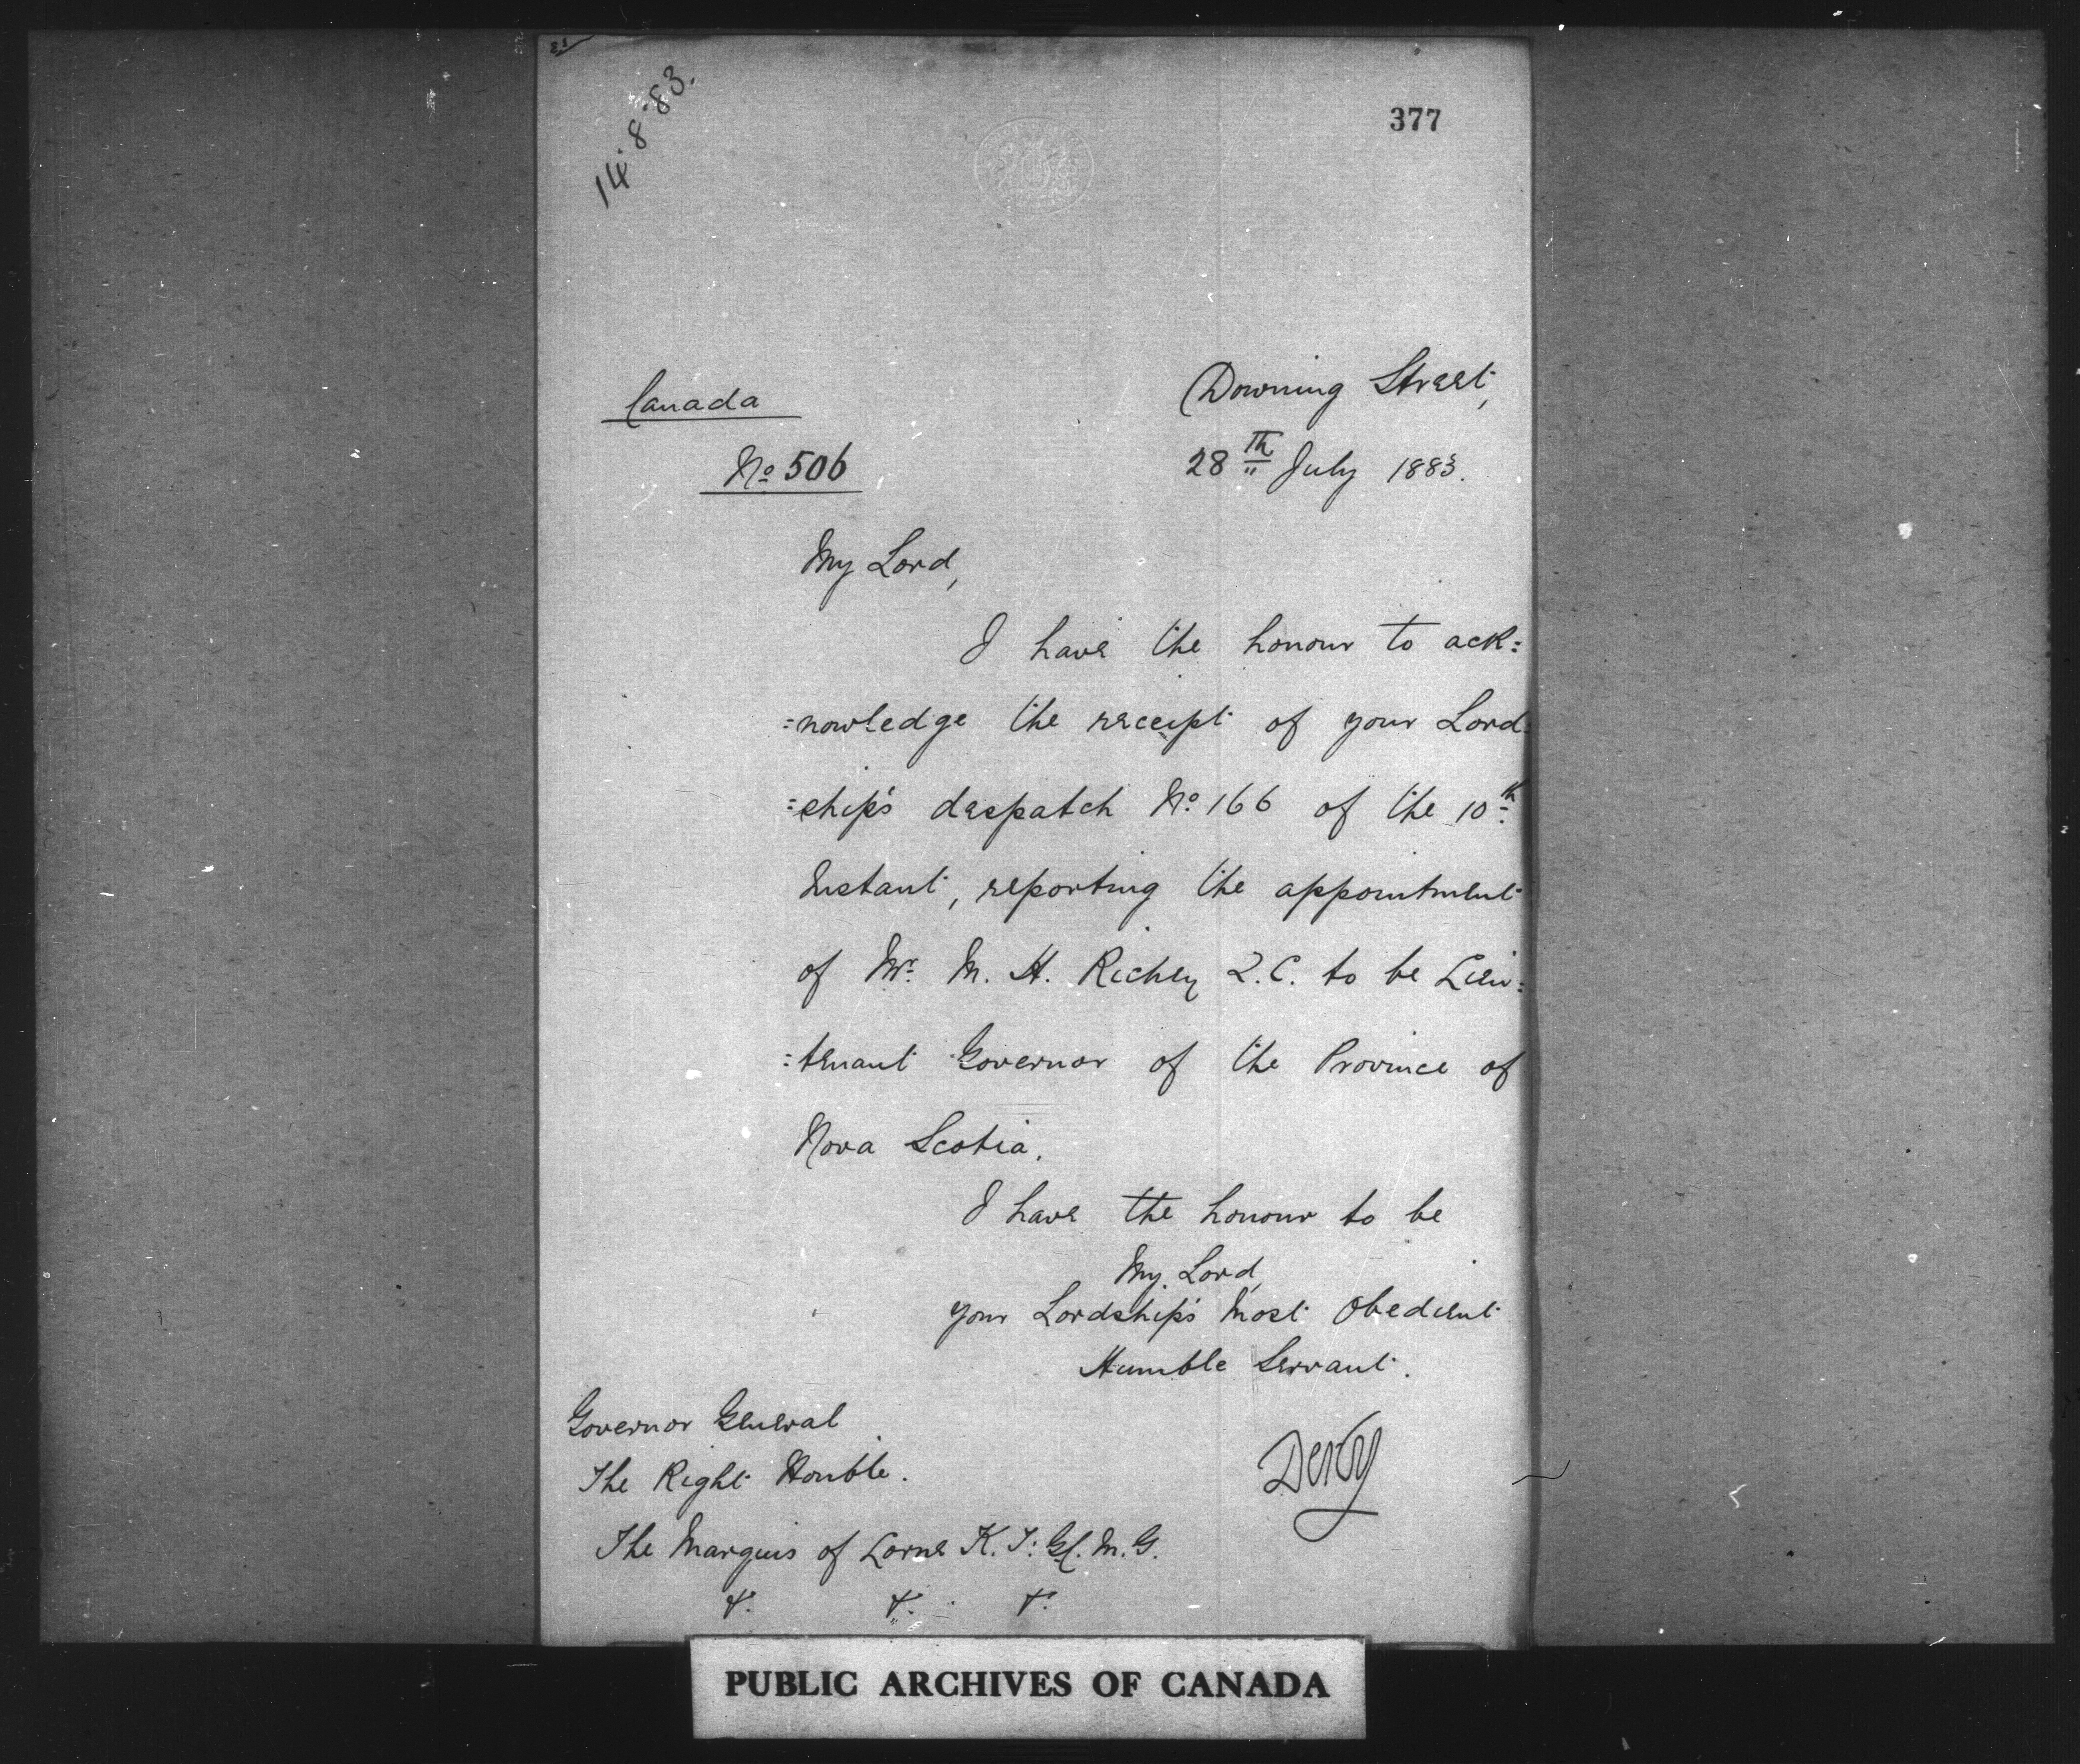 14.8.83.
377
Canada
Downing Street,
No 506
28th July 1883.
My Lord,
I have the honour to ack=
=nowledge the receipt of your Lord=
=ship's despatch No. 166 of the 10th
Instant, reporting the appointment
of Mr. M. H. Richey Q.C. to be Lieu=
=tenant Governor of the Province of
Nova Scotia.
I have the honour to be
My Lord,
your Lordship's Most Obedient
Humble Servant.
Governor General
Derby
The Right Honble.
The Marquis of Lorne K.T. G.C.M.G.
&. &. &.
PUBLIC ARCHIVES OF CANADA